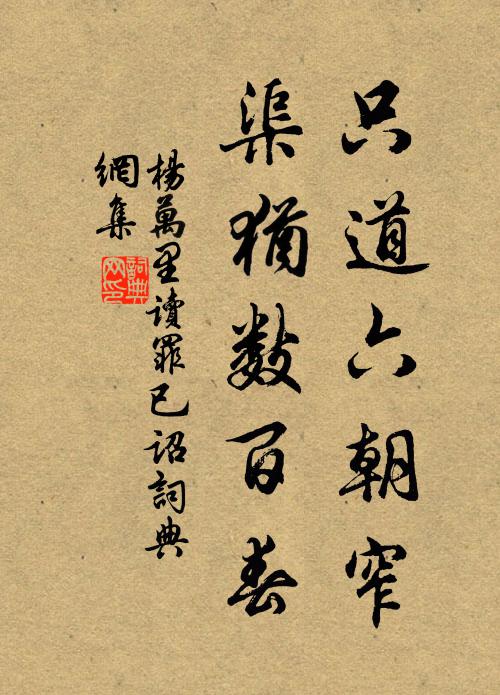 只道六朝窄
渠猶数百春
楊萬里讀罪已詔詞典
網集
詞典
网印